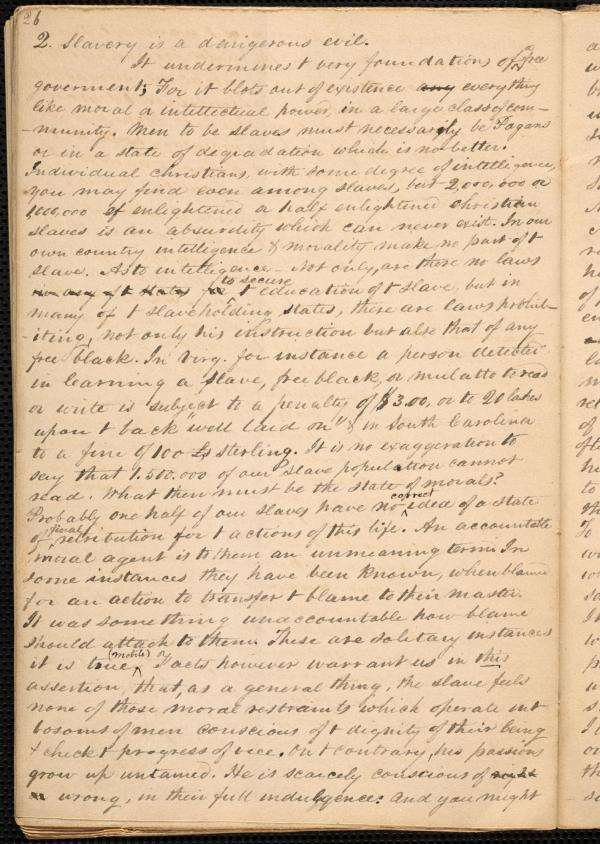 26
2. Slavery is a dangerous evil.
It undermines t very foundations of a free
goverment; For it blots out of existence any everything
like moral or intellectual power, in a large class of com-
-munity. Men to be slaves must necessarily be Pagans
or in a state of degradation which is no better.
Individual christians, with some degree of intelligence,
you may find even among slaves, but 2,000,000 or
1000,000 of enlightened or half enlightened christian
slaves is an absurdity which can never exist. In our
own country intelligence & morality make no part of t
slave. As to intelligence - Not only, are there no laws
in any of t states for to secure t education of t slave, but in
many of t slaveholding states, there are laws prohib-
-iting, not only his instruction but also that of any
free black. In Virg. for instance a person detected
in learning a slave, free black, or mulatto to read
or write is subject to a penalty of $3.00, or to 20 lashes
upon t back "well laid on" & in South Carolina
to a fine of 100 £s sterling. It is no exaggeration to
say that 1.500.000 of our slave population cannot
read. What then must be the state of morals?
Probably one half of our slaves have no correct idea of a state
of final retribution for t actions of this life. An accountable
moral agent is to them an unmeaning term. In
some instances they have been known, when blamed
for an action to transfer t blame to their master.
It was something unaccountable how blame
should attach to them. These are solitary instances
it is true, (mobile) Facts however warrant us in this
assertion, that, as a general thing, the slave feels
none of those moral restraints which operate in t
bosoms of men conscious of t dignity of their being
& check t progress of vice. On t contrary, his passions
grow up untamed. He is scarcely conscious of right
or wrong, in their full indulgence: And you might